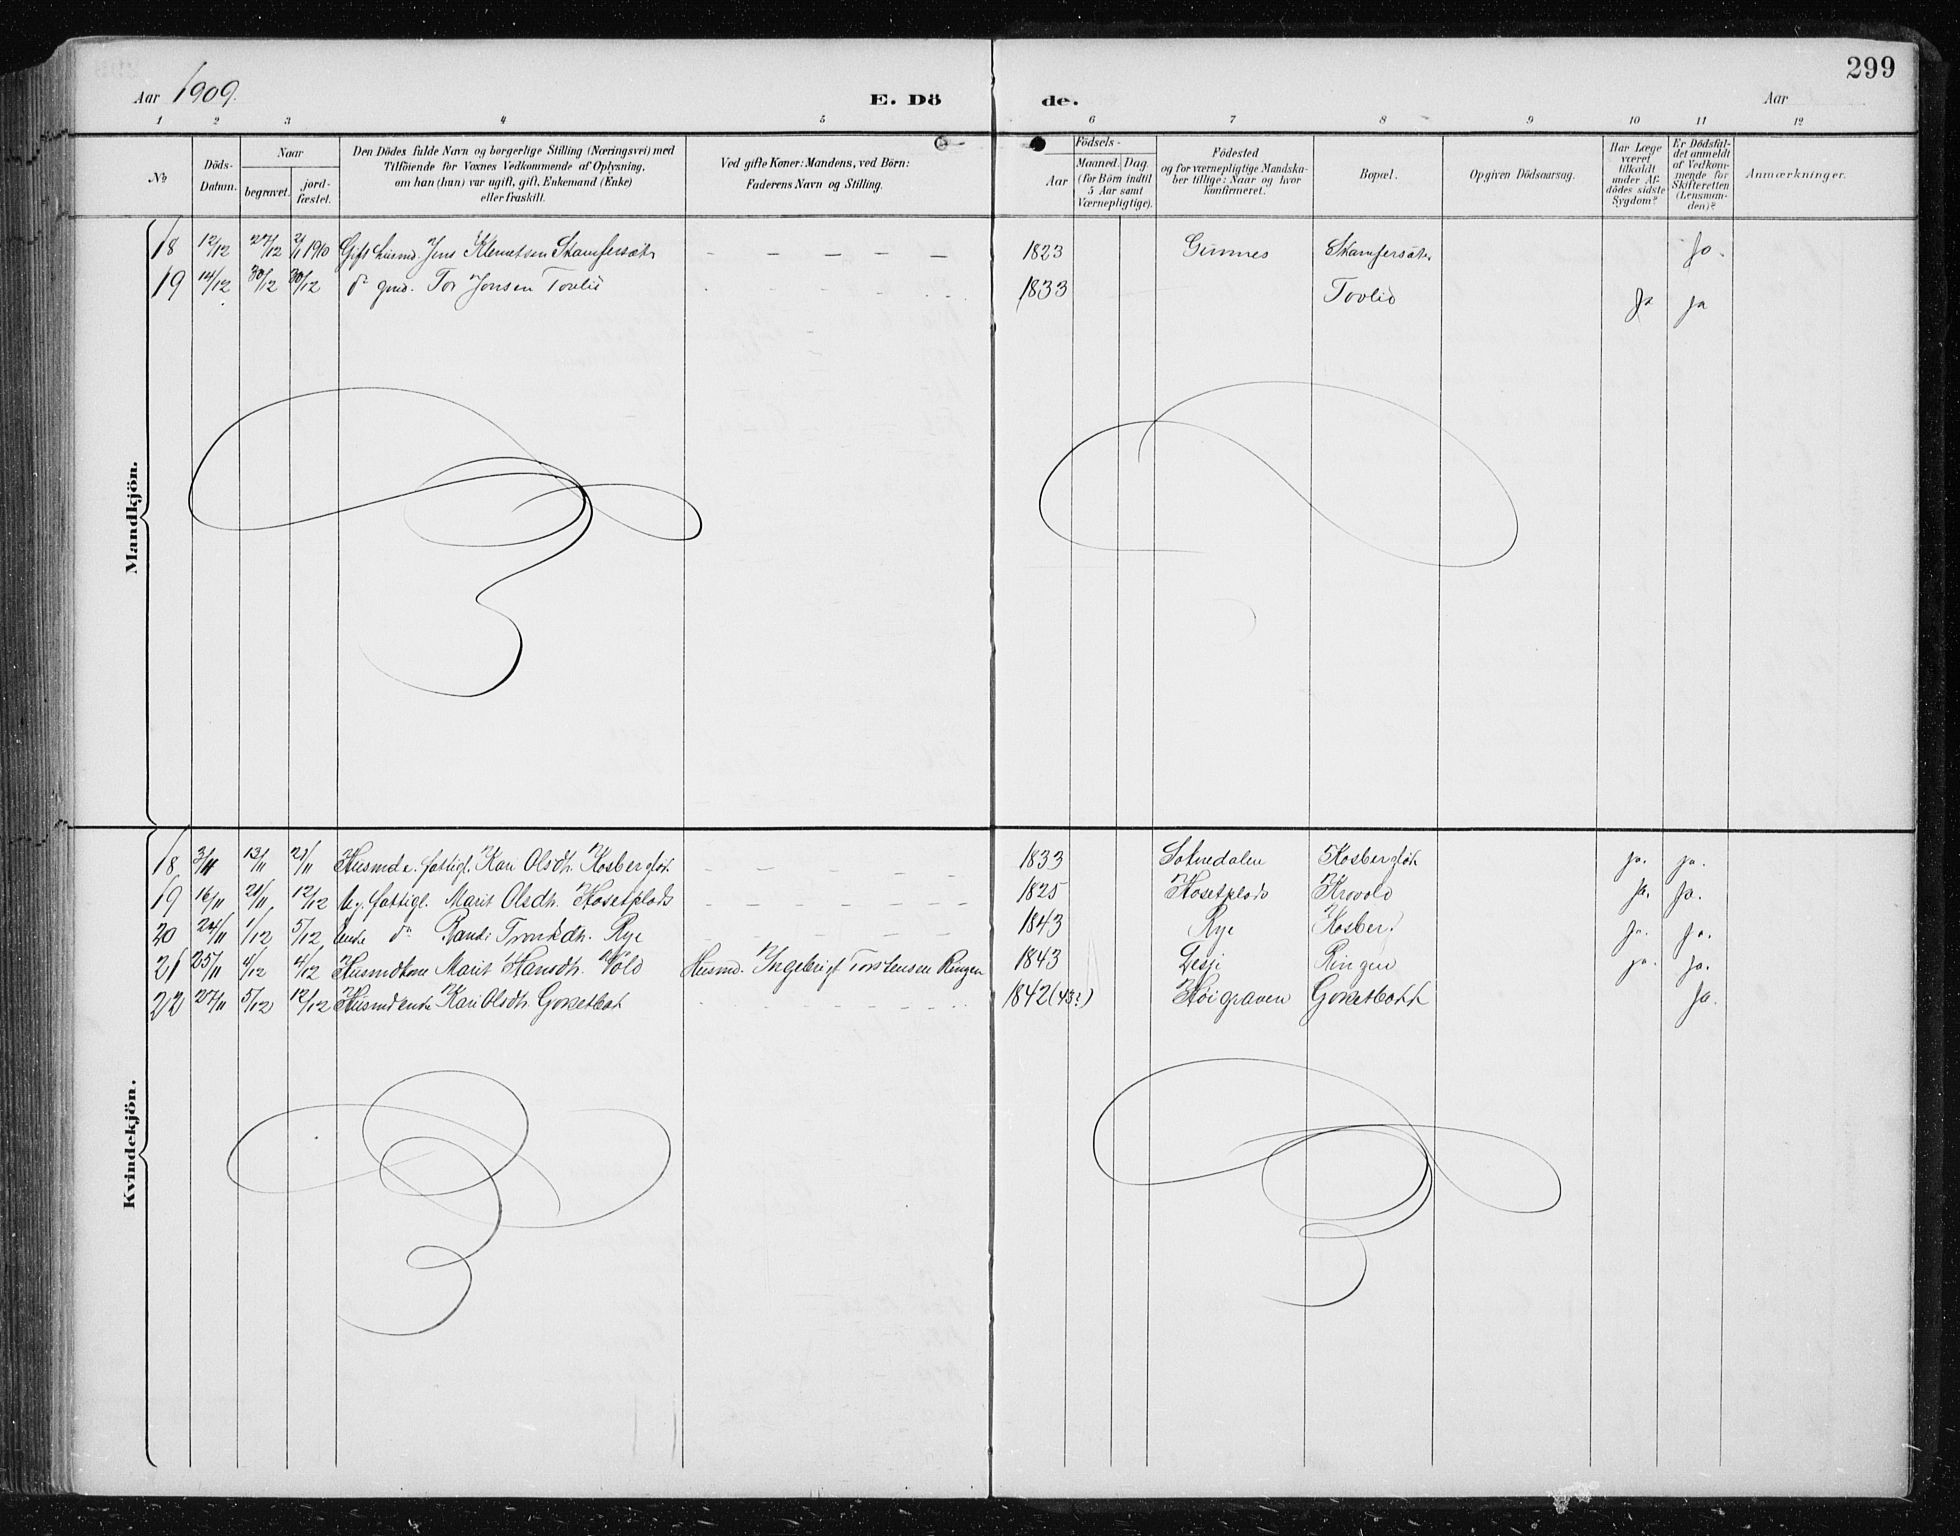 299
Aar 1909. E. Dö de. Aar
1 2 3 4 5 6 7 8 9 10 11 12
No
Döds-Datum.
Naar
begravet.
jord-fæstet.
Den Dödes fulde Navn og borgerlige Stilling (Næringsvei) med
Tilföiende for Voxnes Vedkommende af Oplysning,
om han (hun) var ugift, gift, Enkemand (Enke)
eller fraskilt.
Ved gifte Koner: Mandens, ved Börn:
Faderens Navn og Stilling.
Födsels-
Aar
Maaned. Dag.
(for Börn indtil
5 Aar samt
Værnepligtige).
Födested
og for værnepligtige Mandska-
ber tillige: Naar og hvor
konfirmeret.
Bopæl.
Opgiven Dödsaarsag.
Har Læge
været
tilkaldt
under Af-
dödes sidste
Sygdom?
Er Dödsfal-
det anmeldt
af Vedkom-
mende for
Skifteretten
(Lensman-
den)?
Anmærkninger.
Mandkjön.
18 12/12 27/12 2/1 1910 Gift husmd. Jens Klemetsen Skamfersæt. – – – – – 1823 Gunnes Skamfersæt. Ja.
19 14/12 30/12 30/12 do gmd. Tor Jonsen Tovlio 1833 Tovlio Ja ja
Kvindekjön.
18 3/11 13/11 21/11 fattigl. Kari Olsdh. Kosbergløk – – – – – – 1833 Soknedalen Kosbergløk ja. ja.
19 16/11 21/11 12/12 Ug. fattigl. Marit Olsdh. Hosetplads – – – – – – 1825 Hosetplads Krovold ja. Ja.
20 24/11 1/12 5/12 Enke do Randi Trondsdh. Rye – – – – – – 1843 Rye Kosber. ja. Ja.
21 25/11 4/12 4/12 Husmdkone Marit Hansdh. Vold Husmd. Ingebrigt Torstensen Ringen 1843 Lesje Ringen ja. Ja.
22 27/11 5/12 12/12 Husmdenke Kari Olsdh. Gorsetbak 1842 (43?) Høigraven Gorsetbakk Ja.